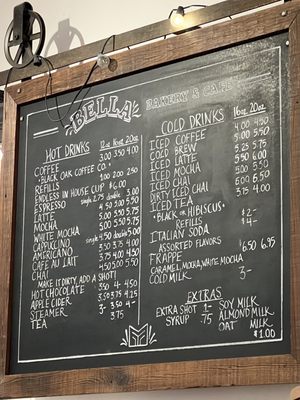 BELLA
BAKERY & CAFE
HOT DRINKS 12oz 16oz 20oz
COFFEE 3.00 3.50 4.00
•BLACK OAK COFFEE CO.•
REFILLS 1.00 2.00 2.50
ENDLESS IN HOUSE CUP $6.00
ESPRESSO single 2.75 double 3.00
LATTE 4.50 5.00 5.50
MOCHA 5.00 5.50 5.75
WHITE MOCHA 5.00 5.50 5.75
CAPPUCCINO single 4.50 double 5.00
AMERICANO 3.50 3.75 4.00
CAFE AU LAIT 3.75 4.00
CHAI 4.50 5.00 5.50
MAKE IT DIRTY, ADD A SHOT!
HOT CHOCOLATE 3.50 4- 4.50
APPLE CIDER 3.50 3.75 4.25
STEAMER 3- 3.50 4-
TEA 3.75
COLD DRINKS 16oz 20oz
ICED COFFEE 4.00 4.50
COLD BREW 5.00 5.50
ICED LATTE 5.25 5.75
ICED MOCHA 5.50 6.00
ICED CHAI
DIRTY ICED CHAI
ICED TEA 3.75 4.00
•BLACK OR HIBISCUS•
REFILLS $2-
ITALIAN SODA $4-
ASSORTED FLAVORS
FRAPPE $6.50 6.95
CARAMEL, MOCHA, WHITE, MOCHA
COLD MILK 3-
EXTRAS
EXTRA SHOT 1- SOY MILK
SYRUP .75 ALMOND MILK
OAT MILK
$1.00